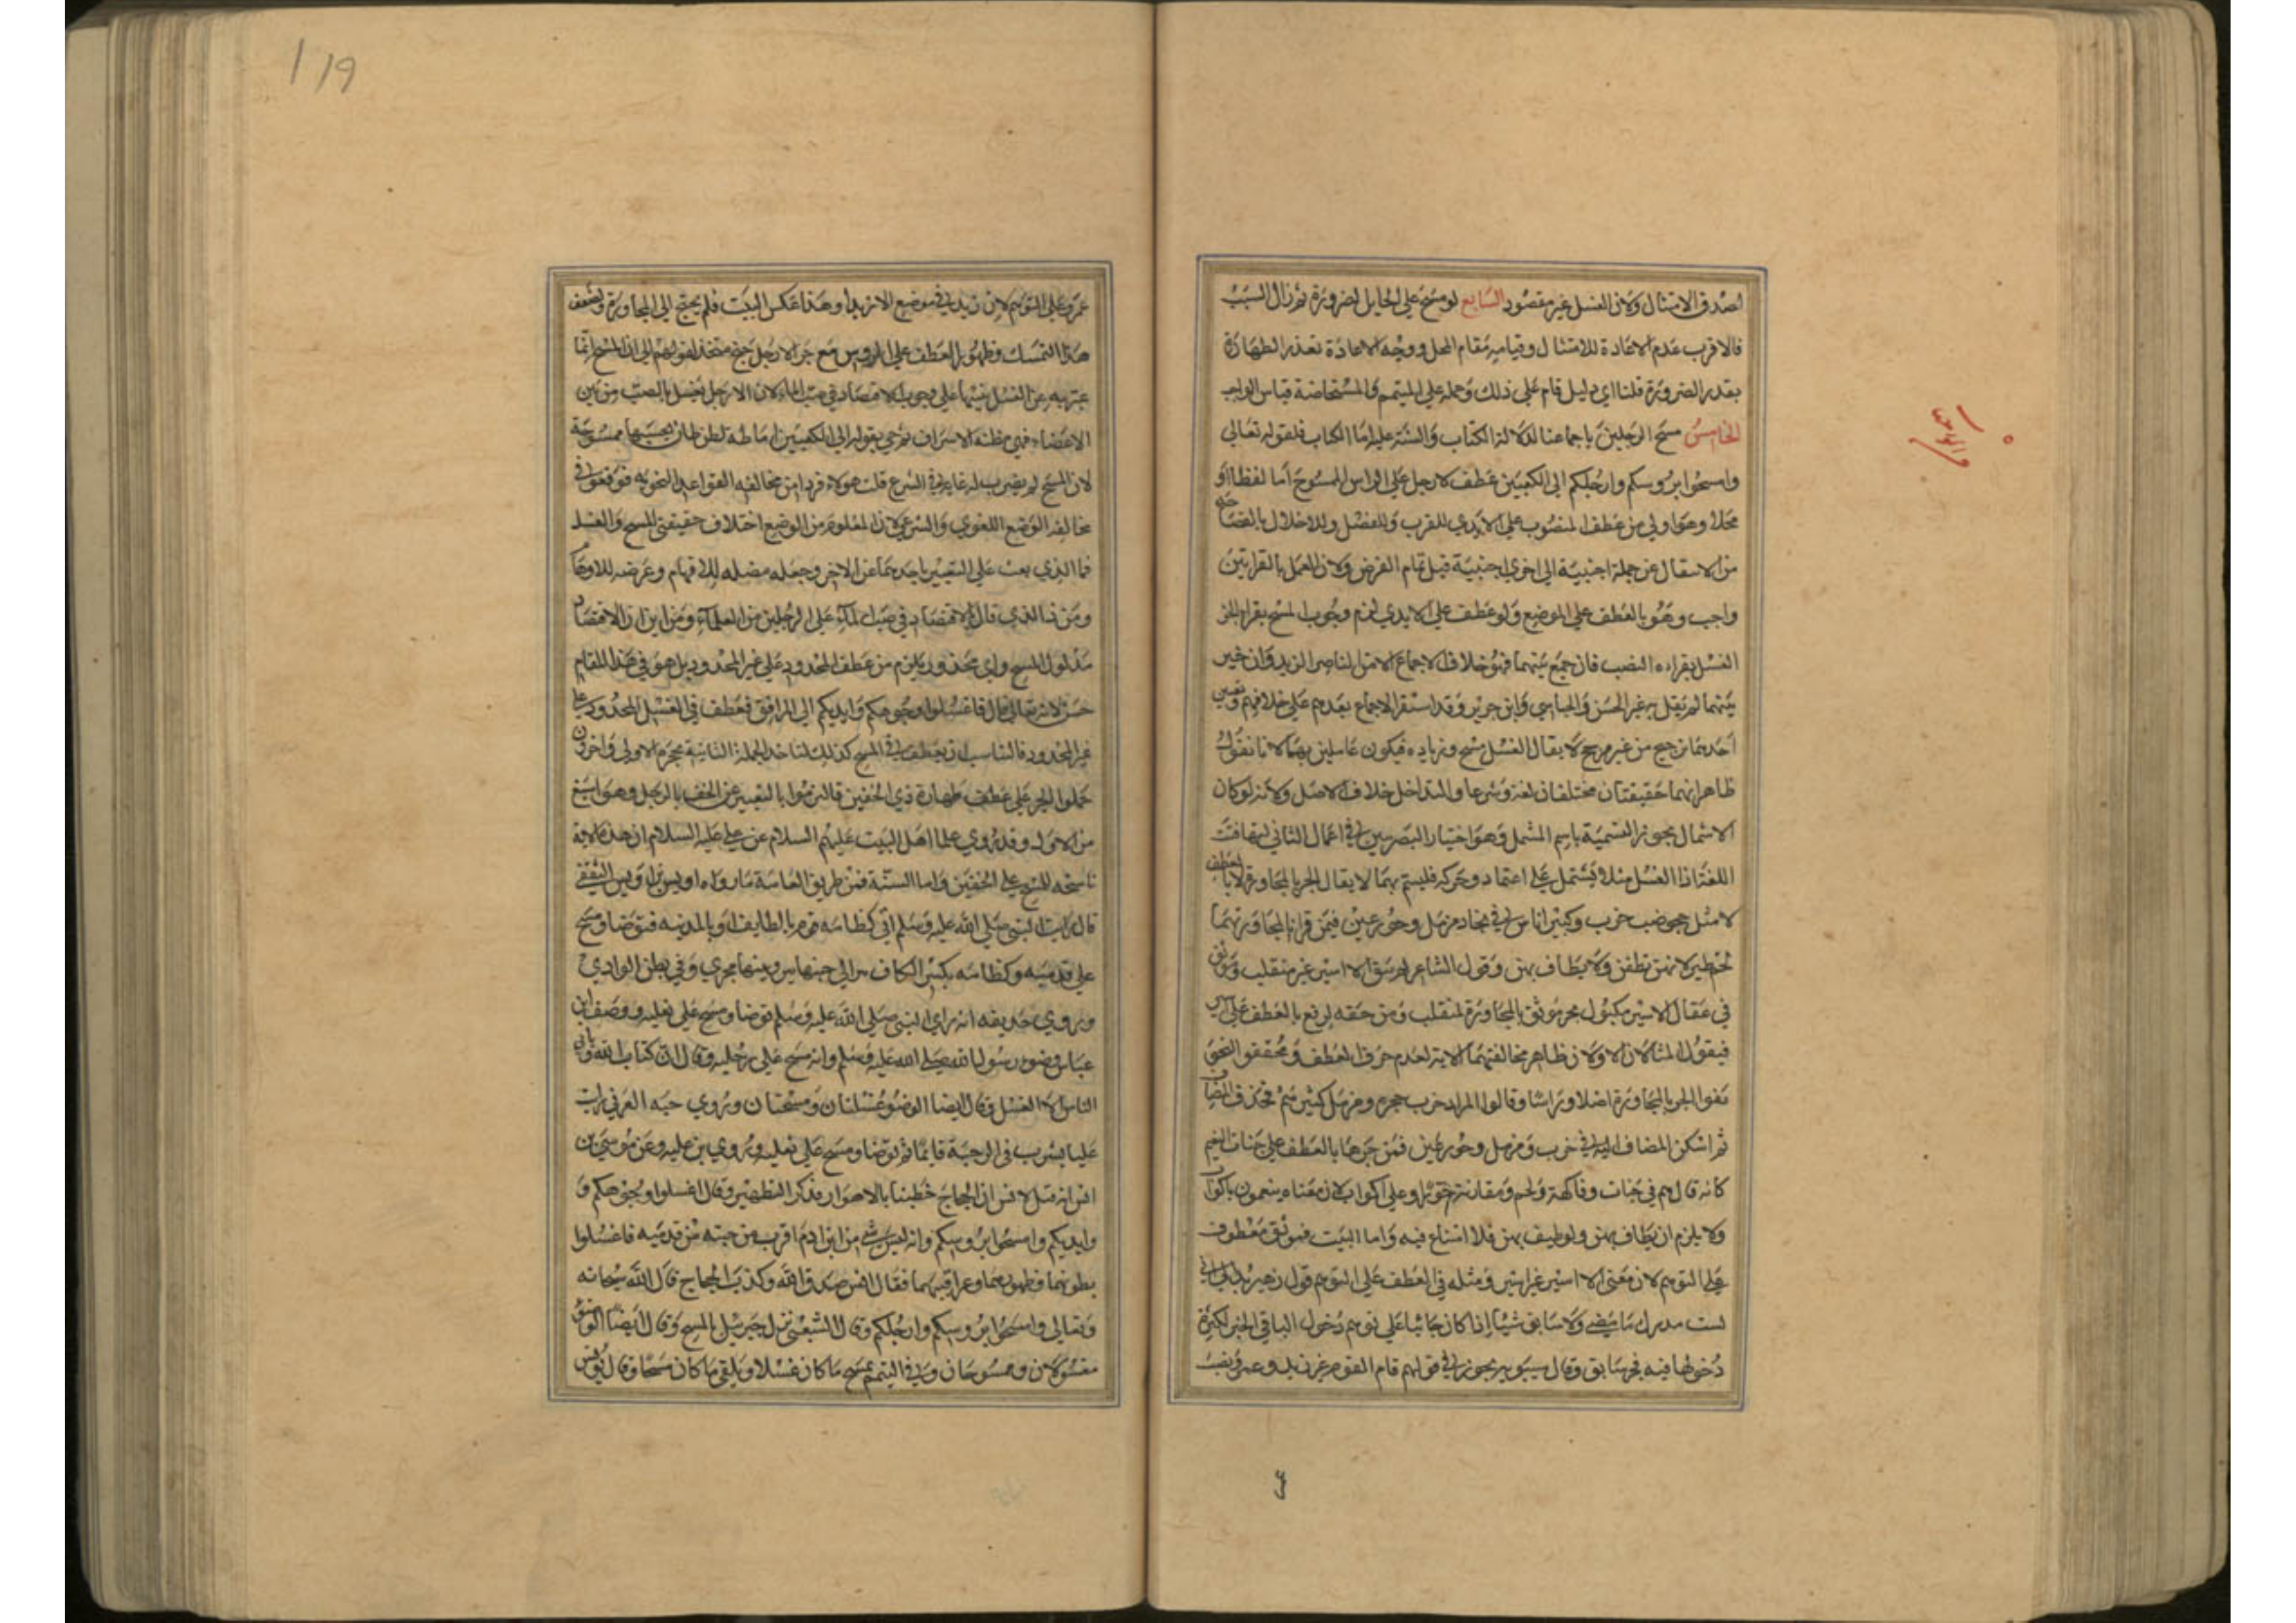 لصدق الامتثال ولان الغسل غير مقصود السابع لو مسح على الحايل لضرورة ثم زال السبب
فالاقرب عدم الاعادة للامتثال وقيامه مقام المحل ووجه الاعادة تعذر الطهارة
بقدر الضرورة قلنا اي دليل قام على ذلك وحمله على المتيمم والمستحاضة قياس الواجب
الخامس مسح الرجلين باجماعنا لدلالة الكتاب والسنة عليه اما الكتاب فلقوله تعالى
وامسحوا برؤسكم وارجلكم الى الكعبين عطف الارجل على الراس الممسوح اما لفظا او
محلا وهو اولى من عطف المنصوب على الايدي للقرب وللفصل وللاخلال بالفصاحة
من الانتقال عن جملة اجنبية الى اخرى اجنبية قبل تمام الغرض ولان العمل بالقراتين
واجب وهو بالعطف على الموضع ولو عطف على الايدي لزم وجوب المسح بقراة الجر
الغسل بقراءه النصب فان جمع بينهما فهو خلاف الاجماع الا من الناصر الزيدي وان خير
بينهما لم يقل به غير الحسن والجبايي وابن جرير وقد استقر الاجماع بعدهم على خلافهم وتعيين
احدهما ترجيح من غير مرجح لا يقال الغسل مسح وزياده فيكون عاملين بهما لانا نقول
ظاهر انهما حقيقتان مختلفتان لغة وشرعا والتداخل خلاف الاصل ولانه لو كان
الاشتمال يجوز التسمية باسم المشمل وهو اختيار البصريين في اعمال الثاني لتهافتت
اللغة اذا الغسل مثلا يشتمل على اعتماد وحركه فليسم بهما لا يقال الجر بالمجاورة لا بالعطف
لا مثل جحر ضب خرب وكبير اناس في بجاد مزمل وحور عين فيمن قرا بالمجاورتهما
لحم طير لانهن تطفن ولا يطاف بهن وقول الشاعر لم يبق الا اسير غير منقلب وموثق
في عقال الاسير مكبول بجر موثق بالمجاورة لمنقلب ومن حقه الرفع بالعطف على اسير
فيقول المثالان الاولان ظاهر مخالفتهما الاية لعدم حرف العطف ومحققو النحو
نفوا الجر بالمجاورة اصلا وراسا وقالوا المراد خرب جحره ومزمل كبيرهم ثم حذف المضاف
ثم اسكن المضاف اليه في خرب ومزمل وحور عين فمن جرها بالعطف على جنات النعيم
كانه قال هم في جنات وفاكهة ولحم ومقارنة حور او على اكواب لان معناه ينعمون باكواب
ولا يلزم ان يطاف بهن ولو طيف بهن فلا امتناع فيه واما البيت فموثق معطوف
على التوهم لان معنى الا اسير غير اسير ومثله في العطف على التوهم قول زهير بدا لي اني
لست مدرك ما مضى ولا سابق شيئا اذا كان جائيا على توهم دخول الباء في الخبر لكثرة
دخولها فيه فجر سابق وقال سيبويه يجوز في قولهم قام القوم غير زيد وعمرو بنصب
عمرو على التوهم لان زيد في موضع الا زيدا وهذا عكس البيت فلم يحتج الى المجاورة ولضعف
هذا التمسك وظهور العطف على الروس مع جر الارجل جنح متحذلقوهم الى ان المسح انما
عبر به عن الغسل تنبيها على وجوب الاقتصاد في صب الماء لان الارجل تغسل بالصب من بين
الاعضاء فهي مظنة الاسراف ثم جي بقوله الى الكعبين اماطة لظن ظان يحسبها ممسوحة
لان المسح لم يضرب له غاية في الشرع قلت هولاء فروا من مخالفة القواعد النحويه فوقعوا في
مخالفه الوضع اللغوي والشرعي لان المعلوم من الوضع اختلاف حقيقتي المسح والغسل
فما الذي بعث على التعبير باحدهما عن الاخر وجعله مضله للافهام وعرضه للاوهام
ومن ذا الذي قال بالاقتصاد في صب الماء على الرجلين من العلماء ومن اين ان الاقتصاد
مدلول المسح واي محذور يلزم من عطف المحدود على غير المحدود بل هو في هذا المقام
حسن لانه تعالى قال فاغسلوا وجوهكم وايديكم الى المرافق فعطف في الغسل المحدود على
غير المحدود فالمناسب ان يعطف في المسح كذلك لتاخذ الجملة الثانية بحجزة الاولى واخرون
حملوا الجر على عطف طهارة ذي الخفين فالتزموا بالتعبير عن الخف بالرجل وهو اشنع
من الاول وقد روي علما اهل البيت عليهم السلام عن علي عليه السلام ان هذه الاية
ناسخه للمسح على الخفين واما السنة فمن طريق العامة ما رواه اوس بن اوس الثقفي
قال رايت النبي صلى الله عليه وسلم اتى كظامه قوم بالطايف او بالمدينه فتوضا ومسح
على قدميه وكظامه بكسر الكاف بير الى جنبها بير وبينها مجرى وفي بطن الوادي
وروي حذيفه انه راي النبي صلى الله عليه وسلم توضا ومسح على نعليه ووصف ابن
عباس وضوء رسول الله صلى الله عليه وسلم وانه مسح على رجليه وقال ان كتاب الله ويابى
الناس الا الغسل وقال ايضا الوضوء غسلتان ومسحتان وروي حبه العرني رايت
عليا يشرب في الرحبة قايما ثم توضا ومسح على نعليه وروي ابن عليه وعن موسى بن
انس انه قيل لانس ان الحجاج خطبنا بالاهواز فذكر التطهير وقال اغسلوا وجوهكم و
وايديكم وامسحوا برؤسكم وانه ليس شي من ابن ادم اقرب من خبثه من قدميه فاغسلوا
بطونهما وظهورهما وعراقيبهما فقال انس صدق الله وكذب الحجاج قال الله سبحانه
وتعالى وامسحوا برؤسكم وارجلكم وقال الشعبي نزل جبرئيل بالمسح وقال ايضا الوضوء
مغسولان وممسوحان وفي التيمم يمسح ما كان غسلا ويلقى ما كان مسحا وقال يونس
119